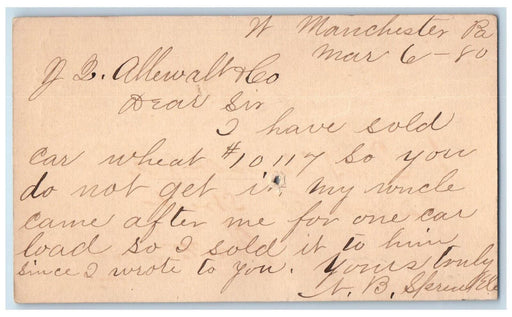 W Manchester Pa
Mar 6 - 80
J. B. Allewalt & Co
Dear Sir
I have sold
car wheat #10117 so you
do not get it. my uncle
came after me for one car
load so I sold it to him
since I wrote to you. Yours truly
B. Sprenkle